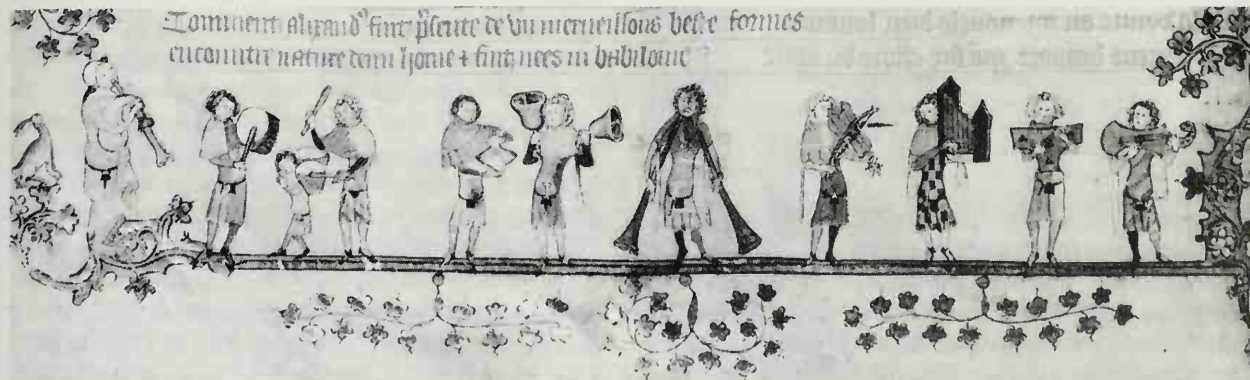 Comment alixand' fut p̃sente de vn merueillous beste formes
encountre nature demi home ⁊ fut nees in babiloine